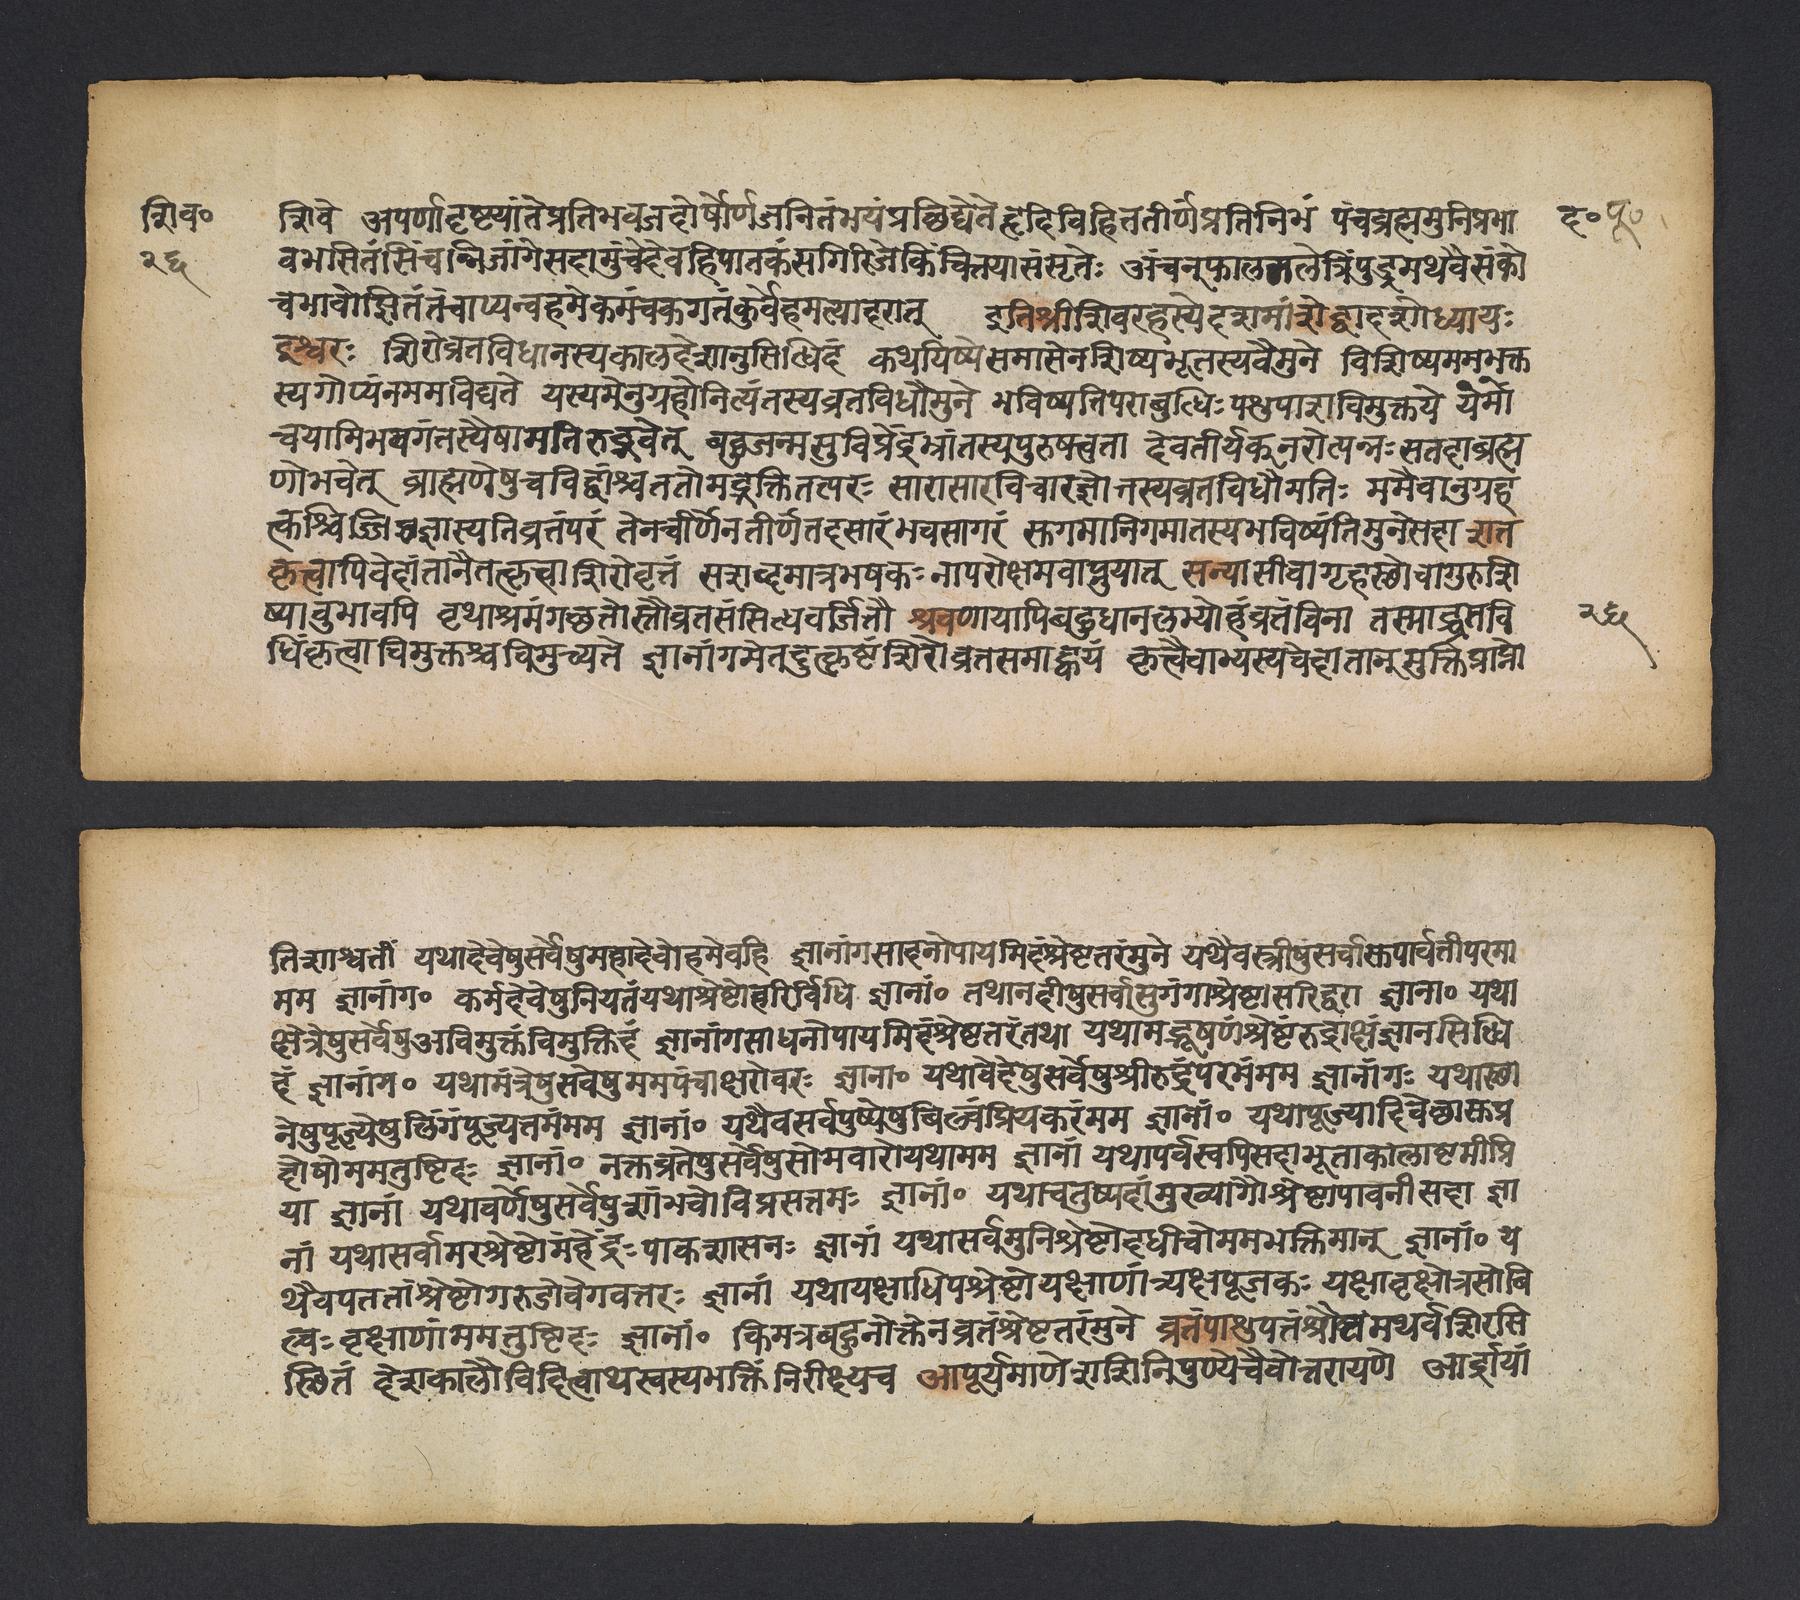 शिव॰ शिवे अपर्णादृष्ट्यांतेप्रतिभवजदोर्षोर्णजनितंभयं प्रछिद्येतेद्देदिविहिततीर्णप्रतिनिभं पंचब्रह्ममुनिप्रभा द॰पू॰
२६ वभसितंसिंचन्निजांगेसदामुंचेदेवहिपातकंसगिरिजेकिंचित्तयासंसृतेः अंचनुफालतलेत्रिंपुड्रमथवैसंको
चेभावोझितंतंचाप्यन्वहमेकमंचकगतंकुर्वेहमत्यादरात् इतिश्रीशिवरहस्येदशमांशेद्वादशोध्यायः
ईश्वरः शिरोव्रतविधानस्यकालदेशानुसिध्दिदं कथयिष्येसमासेनशिष्यभूतस्यवैमुने विशिष्यममभक्त
स्यगोप्यंनममविद्यते यस्यमेनुग्रहोनित्यंतस्यव्रतविधौमुने भविष्यतिपराबुध्दिःपशुपाशविमुक्तये यर्मो
चयामिभवगंतस्यैषामतिरुद्भवेत् बहुजन्मसुविप्रेंद्रभ्रांतस्यपुरुषत्वता देवतीर्यक्नरोत्पन्नःसतदाब्रह्म
णोभवेत् ब्राह्मणेषुचविद्वांश्चततोमद्भक्तितत्परः सारासारविचारज्ञोतस्यव्रतविधौमतिः ममैवानुग्रह
त्कश्चिज्ञिज्ञास्यतिव्रतंपरं तेनचीर्णेनतीर्णंतदसारंभवसागरं स्तगमानिगमातस्यभविष्यंतिमुनेसदा शत
कृत्त्वापिवेदांतानैतत्कृत्वाशिरोवृत्तं सशब्दमात्रभषकःनापरोक्षमवाप्नुयात् सन्यासीवागृहस्छोवागुरुशि
ष्यावुभावपि वृथाश्रमंगच्छतोस्तौव्रतसंसिध्यवर्जितौ श्रवणायापिबहुधानलभ्योहंव्रतंविना तस्माद्व्रतवि २६
धिंकृत्वाविमुक्तश्चविमुच्यते ज्ञानांगमेतदुत्कृष्टंशिरोव्रतसमाह्वयं कृत्वैवाभ्यस्यवेदांतान्मुक्तिंप्राप्नो
तिशाश्वतीं यथादेवेषुसर्वेषुमहादेवोहमेवहि ज्ञानांगसादनोपायमिदंश्रेष्टतरंमुने यथैवस्त्रीषुसर्वास्तपार्वतीपरमा
मम ज्ञानांग॰ कर्मदेवेषुनियतंयथाश्रेष्टोहरिर्विधि ज्ञानां॰ तथानदीषुसर्वासुगंगाश्रेष्टासरिद्वरा ज्ञाना॰ यथा
क्षेत्रेषुसर्वेषुअविमुक्तंविमुक्तिदं ज्ञानांगसाधनोपायमिदंश्रेष्टतरंतथा यथामद्भूषणंश्रेष्टंरुद्राक्षंज्ञानसिध्दि
दं ज्ञानांग॰ यथामंत्रेषुसर्वेषुममपंचाक्षरोवरः ज्ञाना॰ यथावेदेषुसर्वेषुश्रीरुद्रंपरमंमम ज्ञानांगः यथास्छा
नेषुपूज्येषुलिंगंपूज्यतमंमम ज्ञानां॰ यथैवसर्वपुष्पेषुबिल्वंप्रियकरंमम ज्ञानां॰ यथापूज्यादिवेलास्तप्र
दोषोममतुष्टिदः ज्ञानां॰ नक्तव्रतेषुसर्वेषुसोमवारोयथामम ज्ञानां यथापर्वस्वपिसदाभूताकालाष्टमीप्रि
या ज्ञानां यथावर्णेषुसर्वेषुशांभवोविप्रसत्तमः ज्ञानां॰ यथाचतुष्पदांमुख्यागौश्रेष्टापावनीसदा ज्ञा
नां यथासर्वामरश्रेष्टोमहेंद्रःपाकशासनः ज्ञानां यथासर्वमुनिश्रेष्टोदधीचोममभक्तिमान् ज्ञानां॰ य
थैवपततांश्रेष्टोगरुडोवेगवत्तरः ज्ञानां यथायक्षाधिपश्रेष्टोयक्षाणांत्र्यक्षपूजकः यक्षावृक्षोत्रसोबि
ल्वःवृक्षाणांममतुष्टिदः ज्ञानां॰ किमत्रबहुनोक्तेनव्रतंश्रेष्टतरंमुने व्रतंपाशुपतंश्रौतमथर्वशिरसि
स्छितं देशकालौविदित्वाथस्वस्यभक्तिंनिरीक्ष्यच आपूर्यमाणेशशिनिपुण्येचैवोत्तरायणे आर्द्रायां